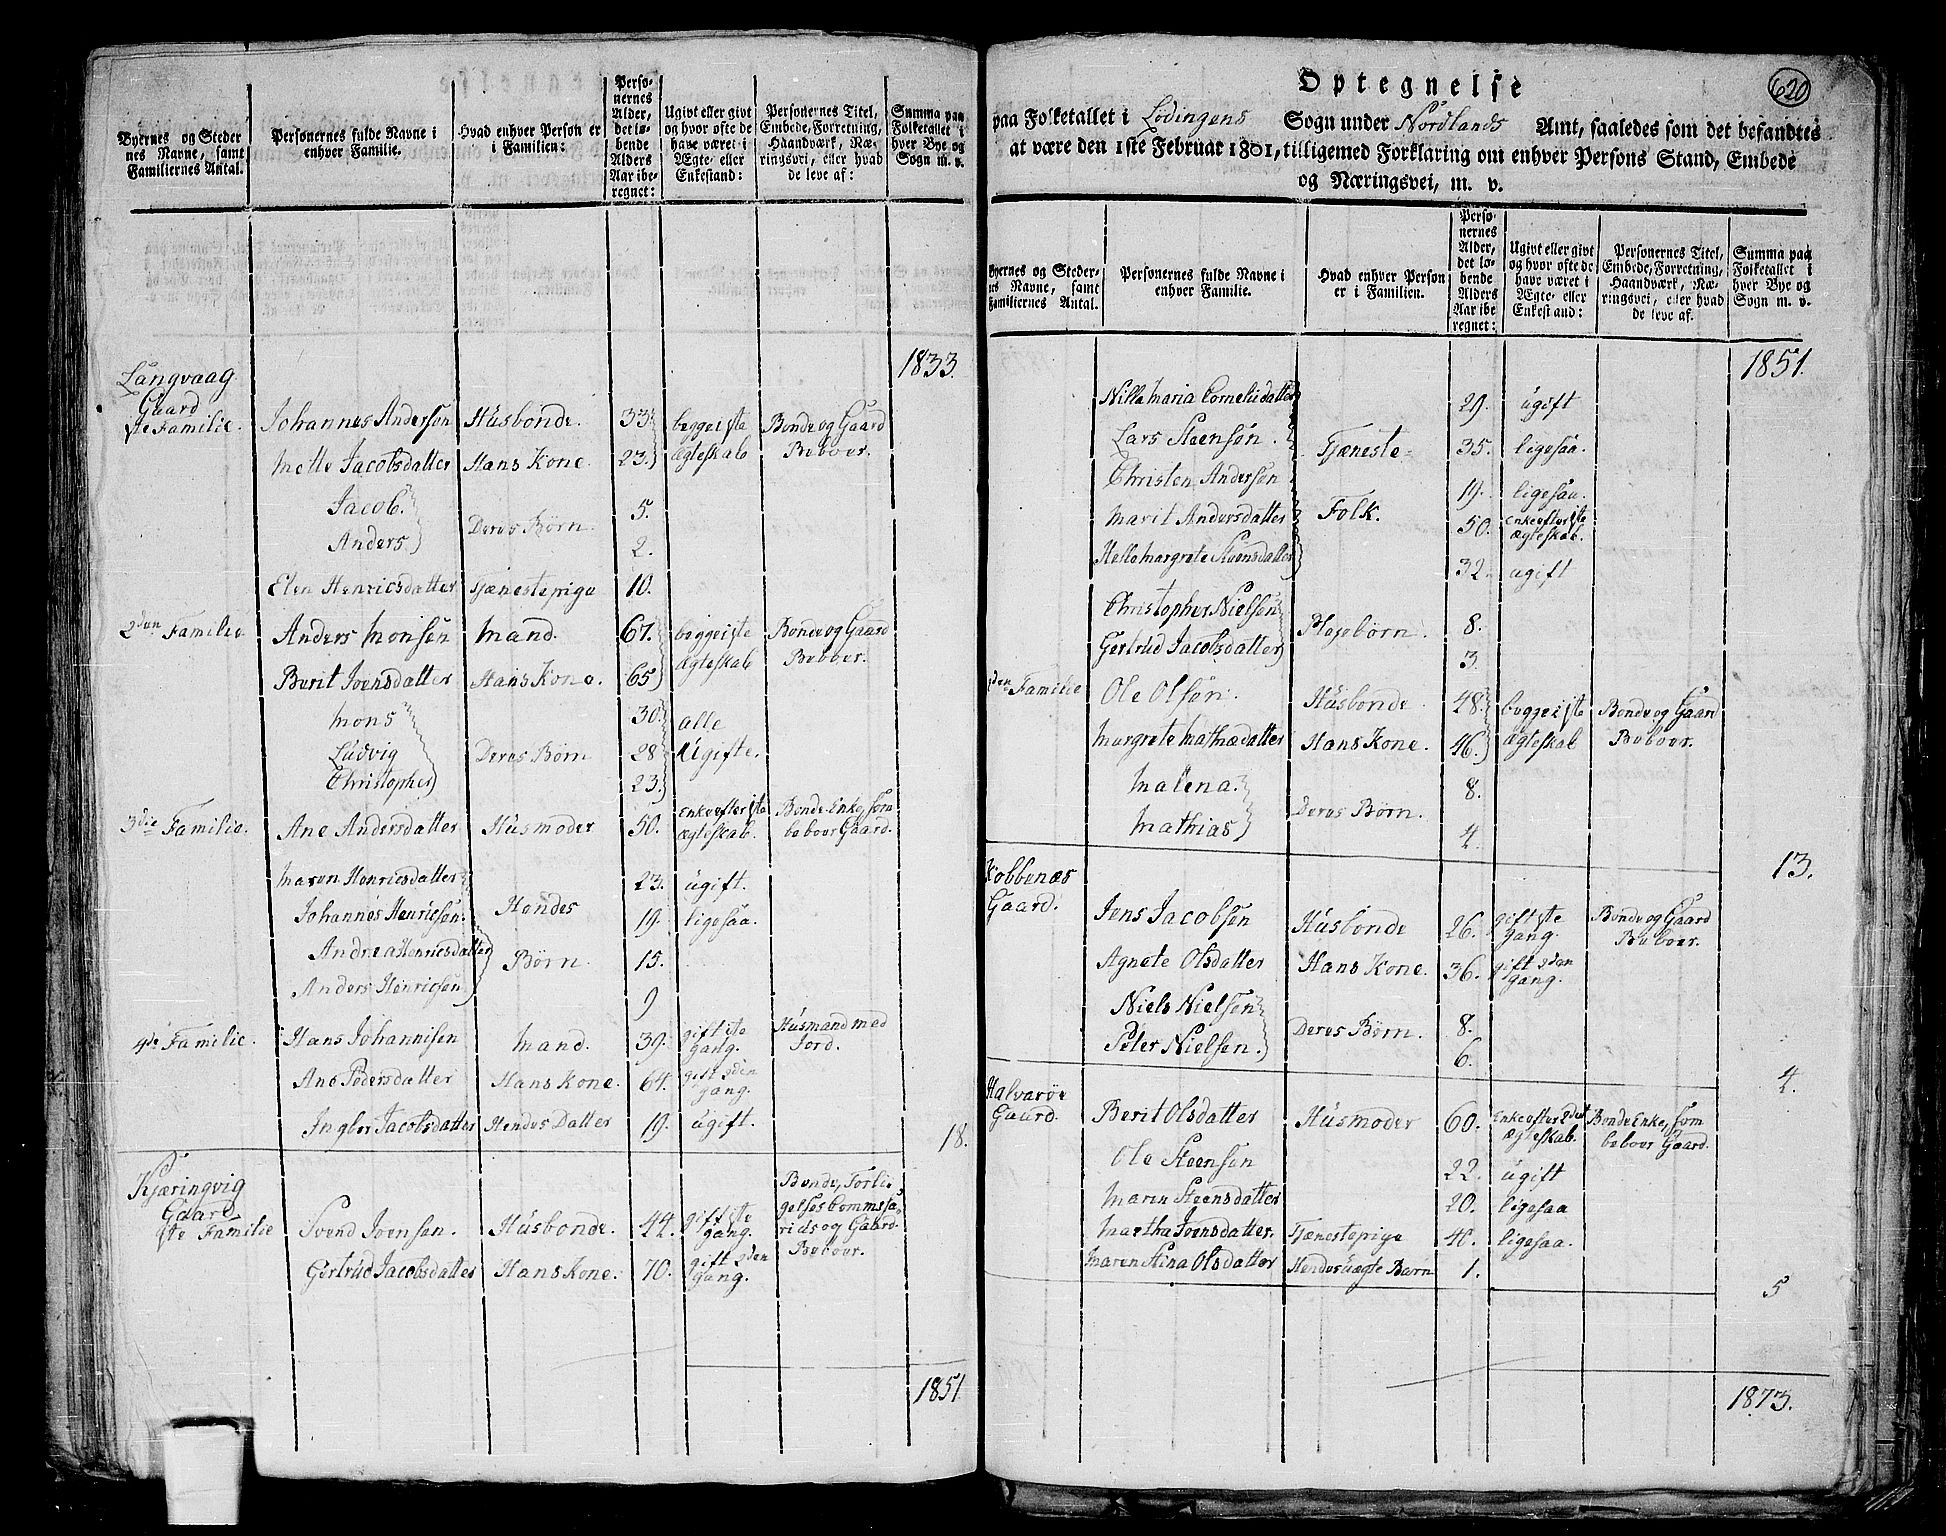 Byernes og Steder
nes Navne, samt
Familiernes Antal.
Personernes fulde Navne i
enhver Familie.
Hvad enhver Person er
i Familien:
Perso-
nernes
Alder,
det lø-
bende
Alders
Aar ibe-
regnet:
Ugivt eller givt
og hvor ofte de
have været i
Ægte- eller
Enkestand:
Personernes Titel,
Embede, Forretning,
Haandværk, Næ-
ringsvei, eller hvad
de leve af:
Summa paa
Folketallet i
hver Bye og
Sogn m. v.
1833.
Langvaag
Gaard
1ste Familie. Johannes Andersøn Husbonde. 33. begge i 1ste Bonde og Gaard
Mette Jacobsdatter Hans Kone. 23. Ægteskab Beboer.
Jacob. 5.
Deres Børn.
Anders 2.
Elen Henricsdatter Tjænestepige 10.
2den Familie Anders Monsen Mand. 67. begge i 1ste Bonde og Gaard
Berit Ivensdatter Hans Kone. 65 Ægteskab Beboer.
Mons 30. alle
Ludvig Deres Børn 28 Ugifte.
Christopher 23.
3die Familie. Ane Andersdatter Husmoder 50. Enke efter 1ste Bonde Enke, som
ægteskab. beboer Gaard.
Maren Henricsdatter 23. ugift.
Johannes Henricsøn. Hendes 19. ligesaa.
Andrea Henricsdatter Børn. 15.
Anders Henricsøn 9
4de Familie. Hans Johannisen Mand. 39. gift 1ste Husmand med
gang. Jord.
Ane Pedersdatter Hans Kone. 64. gift 2den
gang.
Ingbor Jacobsdatter Hendes Datter 19. ugift. 18.
Kjæringvig
Gaard
1ste Familie Svend Ivensen. Husbonde. 44. gift 1ste gang. Bonde, Forli
gelses Commissa
rids og Gaard
Beboer.
Gertrud Jacobsdatter Hans Kone. 70. gift 2den
gang.
1851
620
Optegnelse
paa Folketallet i Lødingens Sogn under Nordlands Amt, saaledes som det befandtes
at være den 1ste Februar 1801, tilligemed Forklaring om enhver Persons Stand, Embede
og Næringsvei, m. v.
Byernes og Steder-
nes Navne, samt
Familiernes Antal.
Personernes fulde Navne i
enhver Familie.
Hvad enhver Person
er i Familien.
Perso-
nernes
Alder,
det lø-
bende
Alders
Aar ibe-
regnet:
Ugivt eller givt
og hvor ofte de
have været i
Ægte- eller
Enkestand:
Personernes Titel,
Embede, Forretning,
Haandværk, Næ-
ringsvei, eller hvad
de leve af.
Summa paa
Folketallet i
hver Bye og
Sogn m. v.
1851.
Nille Maria Cornelisdatter 29. ugift
Lars Steensøn. Tjæneste= 35. ligesaa.
Christen Andersøn 19. ligesaa.
Marit Andersdatter Folk. 50. Enke efter 1ste
ægteskab.
Margrete Steensdatter 32. ugift
Christopher Nielsøn 8.
Plejebørn.
Gertrud Jacobsdatter 3.
2den Familie Ole Olsøn. Husbonde 48. begge i 1ste Bonde og Gaard
Margrete Mathiædatter Hans Kone. 46. Ægteskab Beboer.
Malena. 8.
Deres Børn.
Mathias 4. 13.
Kobbenæs
Gaard. Jens Jacobsen Husbonde 26. gift 1ste Bonde og Gaard
gang. Beboer.
Agnete Olsdatter Hans Kone. 36. gift 2den
gang.
Niels Nielsøn 8.
Deres Børn.
Peter Nielsen. 6. 4.
Halvarøe
Gaard. Berit Olsdatter Husmoder 60. Enke efter 2det Bonde Enke, som
Ægteskab. beboer Gaard.
Ole Steensøn 22. ugift
Maren Steensdatter 20. ligesaa
Martha Ivensdatter. Tjænestepige 40. ligesaa.
Maren Stina Olsdatter Hendes uægte Barn 1. 5
1873.